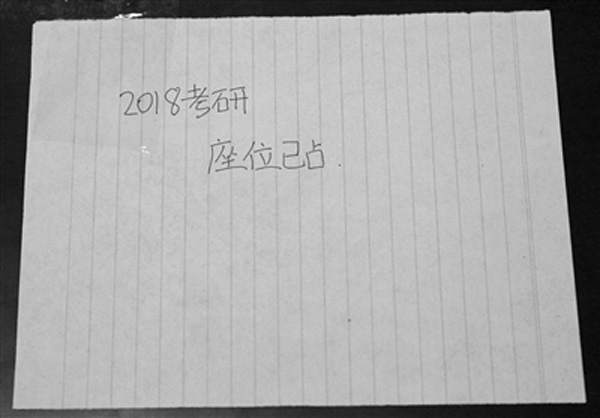 2018考研
座位已占.